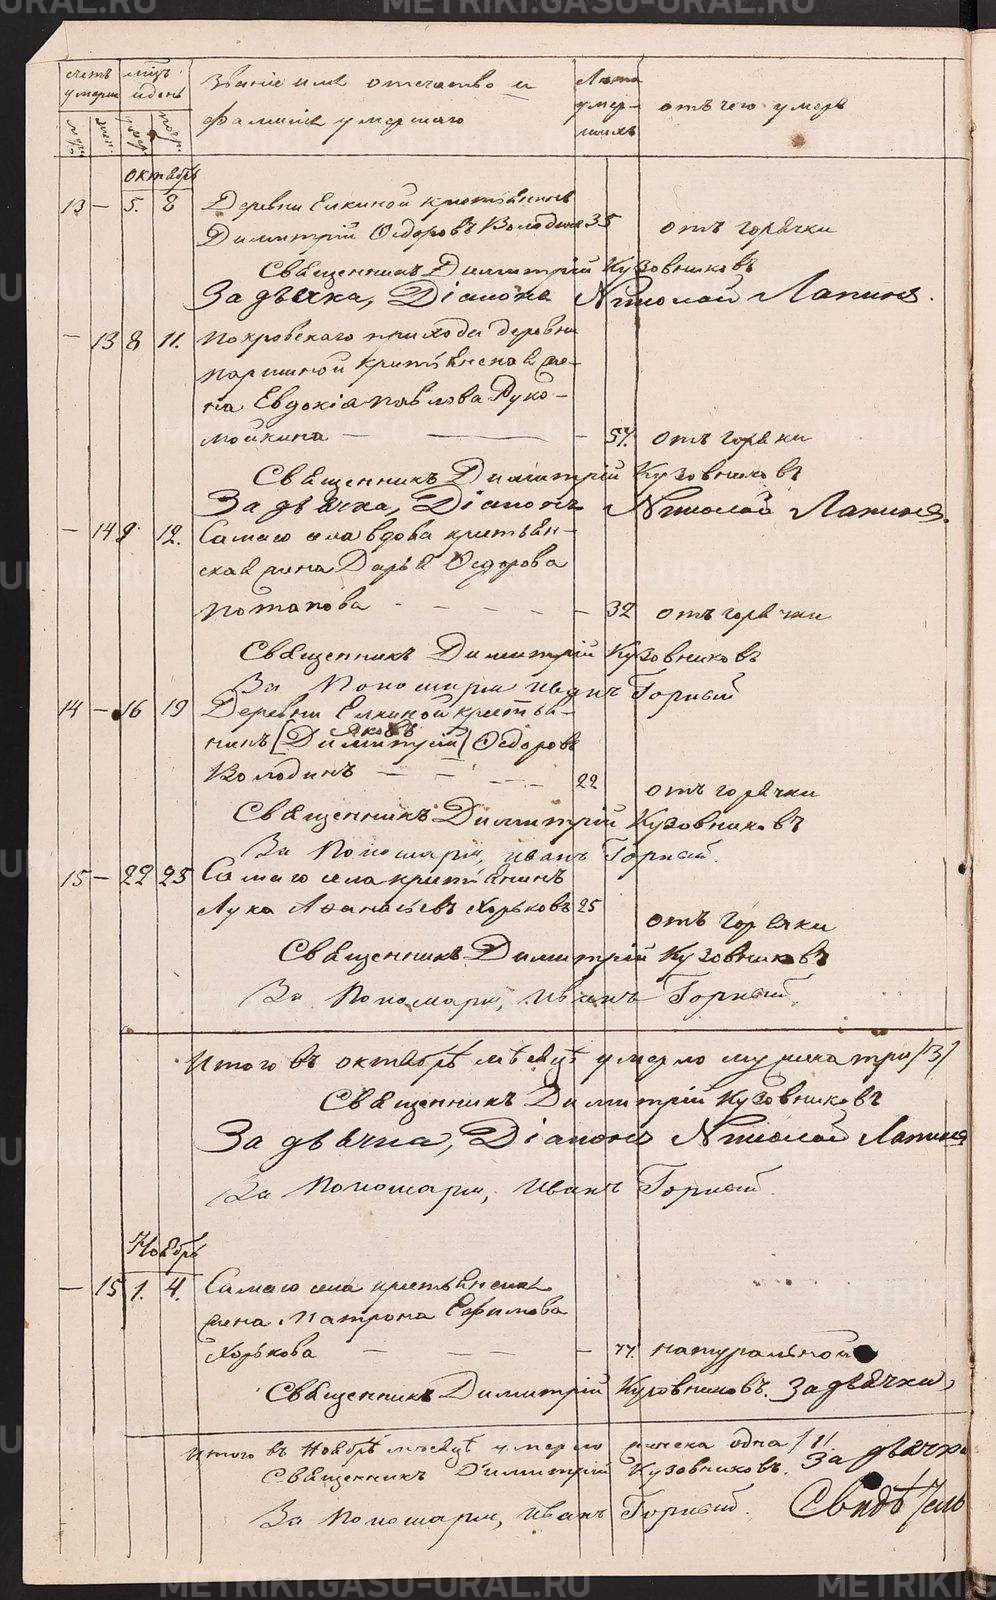 METRIKI.GASU-URAL.RU
счетъ умерш. мцъ и день Званіе имя отечество и фамилія умершаго Лета умершихъ отъ чего умеръ
октябрь
13 — 5. 8 Деревни Елкиной крестьянинъ
Димитрій Ѳедоровъ Володинъ 35 отъ горячки
Священникъ Димитрій Кузовниковъ
За дьячка, Діаконъ Николай Лапинъ.
— 13 8 11. Покровскаго прихода деревни
крестьянская же-
на Евдокія Павлова Руко-
мойкина — — — 57. отъ горячки
Священникъ Димитрій Кузовниковъ
За дьячка, Діаконъ Николай Лапинъ.
— 14 9 12. Самаго села вдова крестьян-
ская жена Дарья Ѳедорова
Потапова - - - - 32 отъ горячки
Священникъ Димитрій Кузовниковъ
За Пономаря Иванъ Горный
14 — 16 19 Деревни Елкиной крестья-
Яковъ
нинъ [Димитрій] Ѳедоровъ
Володинъ — — — 22 отъ горячки
Священникъ Димитрій Кузовниковъ
За Пономаря, Иванъ Горный.
15 — 22 25 Самаго села крестьянинъ
Лука Аѳанасьевъ Хорьковъ 25 отъ горячки
Священникъ Димитрій Кузовниковъ
За Пономаря, Иванъ Горный.
Итого въ октябрѣ мѣсяцѣ умерло мужска три /3/
Священникъ Димитрій Кузовниковъ
За дьячка, Діаконъ Николай Лапинъ
За Пономаря, Иванъ Горный.
Ноябрь
— 15 1. 4. Самаго села крестьянская
жена Матрона Ефимова
Хорькова — — — 77. натуральной
Священникъ Димитрій Кузовниковъ. За дьячка,
Итого въ Ноябрѣ мѣсяцѣ умерло женска одна /1/.
Священникъ Димитрій Кузовниковъ. За дьячка
За Пономаря, Иванъ Горный. Свидѣтель